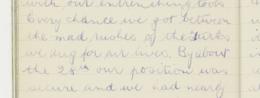 with our entrenching tools
Every chance we got between
the mad rushes of the Turks
we dug for our lives. By about
the 28th our position was
secure and we had nearly